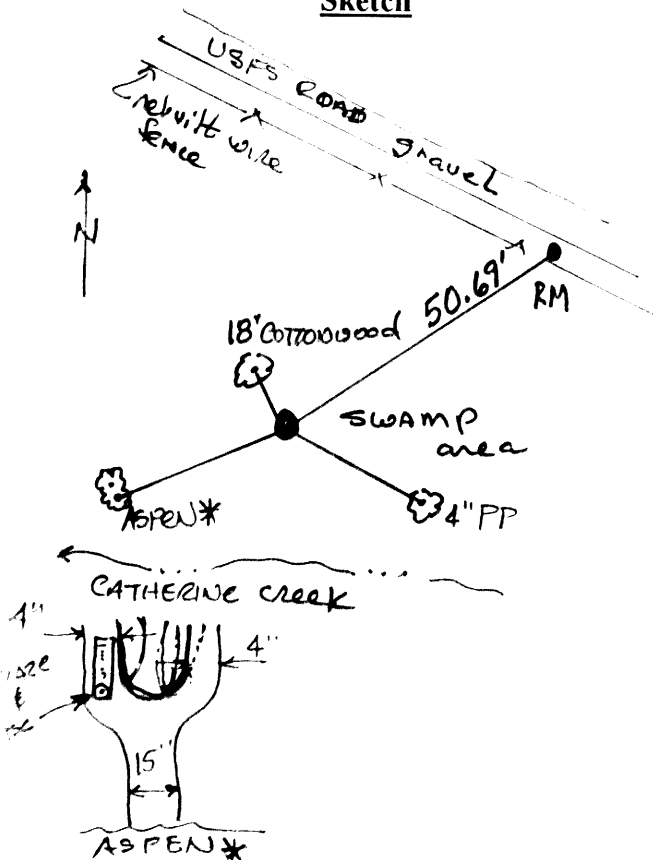 Sketch
USFS ROAD gravel
rebuilt wire
fence
N
50.69'
RM
18" COTTONWOOD
SWAMP
area
ASPEN*
4" PP
CATHERINE CREEK
4"
4"
15"
ASPEN*